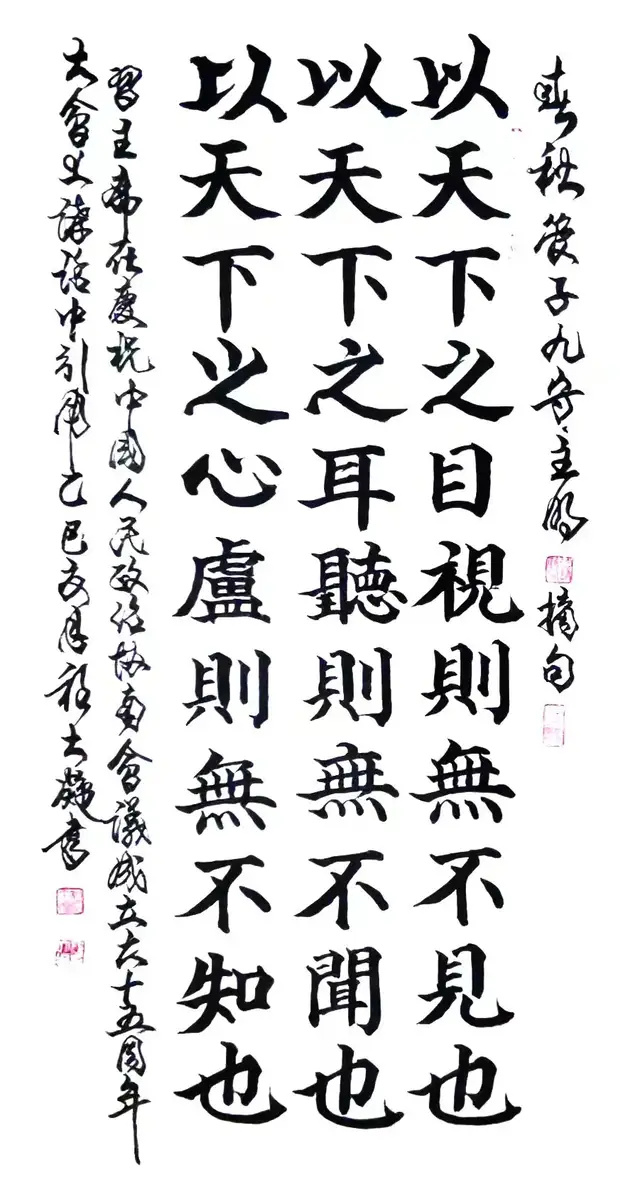 春秋管子九守、主明摘句
以天下之目視則無不見也
以天下之耳聽則無不聞也
以天下之心盧則無不知也
習主席在慶祝中國人民政治協商會議成立六十五周年
大會上講話中引用乙巳月大書